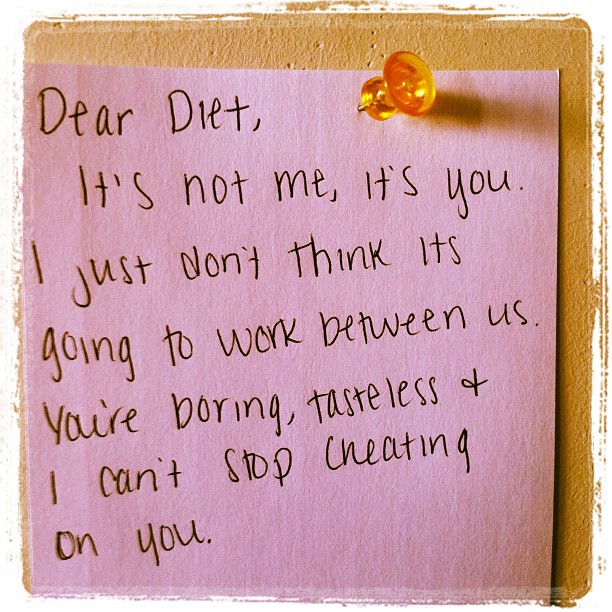 Dear Diet,
It's not me, it's you.
I just don't think its
going to work between us.
You're boring, tasteless +
I can't stop cheating
on you.